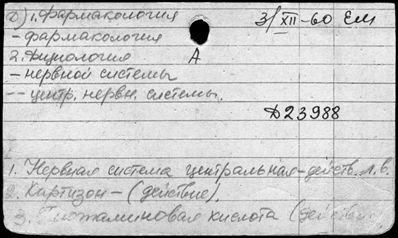 Д) 1. Фармакология 3/XII-60 ЕМ
- фармакология
2. Физиология А
- нервной системы
-- центр. нервн. системы.
Д23988
1. Нервная система центральная-действ. л.в.
2. Картизон - (действие),
3. кислота (действие)